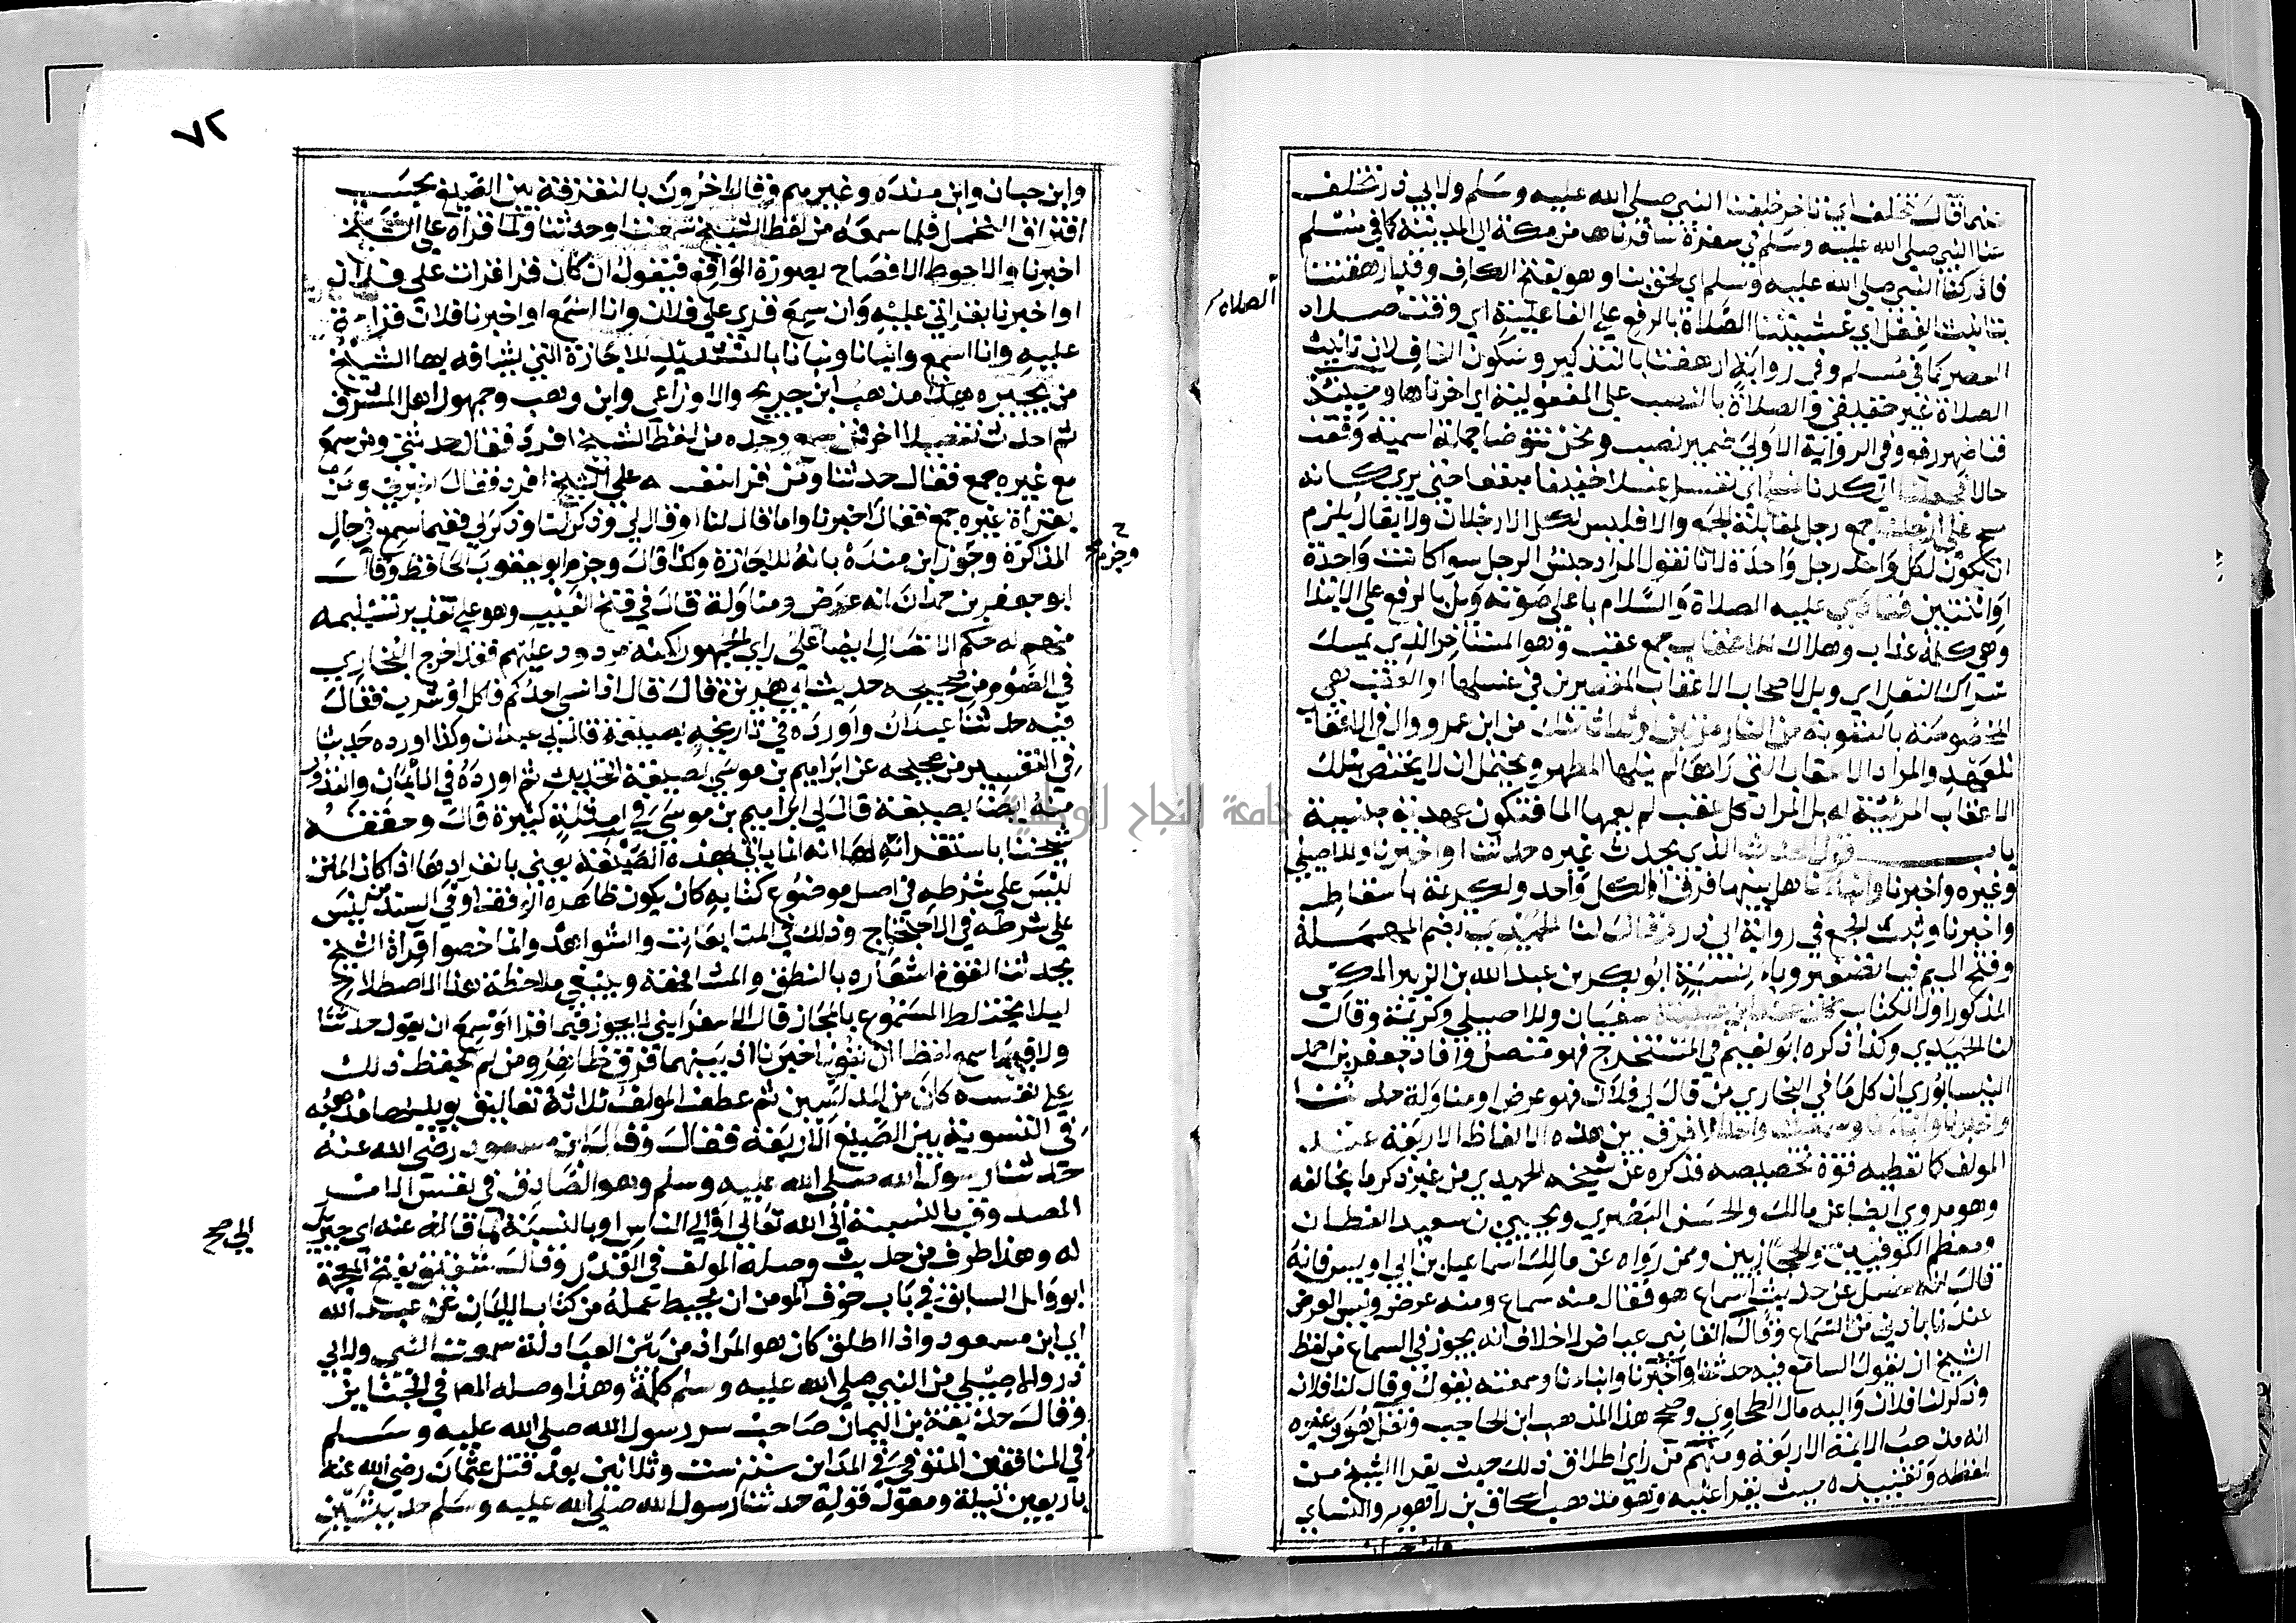 عنهما قال تخلف اي تاخر خلفنا النبي صلى الله عليه وسلم ولابي ذر تخلف
عنا النبي صلى الله عليه وسلم في سفرة سافرناها من مكة الى المدينة كما في مسلم
فادركنا النبي صلى الله عليه وسلم اي لحق بنا وهو بفتح الكاف وقد ارهقتنا
بتانيث الفعل اي غشيتنا الصلاة بالرفع على الفاعلية اي وقت صلاة
العصر كما في مسلم وفي رواية ارهقنا بالتذكير وسكون القاف لان تانيث
الصلاة غير حقيقي والصلاة بالنصب على المفعولية اي اخرناها وحينئذ
فنا ضمير رفع وفي الرواية الاولى ضمير نصب ونحن نتوضا جملة اسمية وقعت
حالا فجعلنا اي كدنا نمسح اي نغسل غسلا خفيفا مبقعا حتى يرى كانه
مسح على ارجلنا جمع رجل لمقابلة الجمع والا فليس لكل الا رجلان ولا يقال يلزم
ان يكون لكل واحد رجل واحدة لانا نقول المراد جنس الرجل سوا كانت واحدة
او اثنتين فنادى عليه الصلاة والسلام باعلى صوته ويل بالرفع على الابتدا
وهي كلمة عذاب وهلاك للاعقاب جمع عقب وهو المستاخر الذي يمسك
شراك النعل اي ويل لاصحاب الاعقاب المقصرين في غسلها او العقب هي
المخصوصة بالعقوبة من النار مرتين او ثلاثا شك من ابن عمرو وال في الاعقاب
للعهد والمراد الاعقاب التي راها لم ينلها المطهر ويحتمل ان لا يختص بتلك
الاعقاب المرئية له بل المراد كل عقب لم يعمها الما فتكون عهدية جنسية
باب قول المحدث الذي يحدث غيره حدثنا او اخبرنا وللاصيلي
وغيره واخبرنا وانبانا هل بينهما فرق او الكل واحد ولكريمة باسقاط
واخبرنا وثبت الجمع في رواية ابي ذر وقال لنا الحميدي بضم المهملة
وفتح الميم فيا تصغير وياء نسبة ابو بكر بن عبد الله بن الزبير المكي
المذكور اول الكتاب كان عند ابن عيينة سفيان وللاصيلي وكريمة وقال
لنا الحميدي وكذا ذكره ابو نعيم في المستخرج فهو متصل وافاد جعفر بن احمد
النيسابوري ان كل ما في البخاري من قال لي فلان فهو عرض او مناولة حدثنا
واخبرنا وانبانا وسمعت واحدا لا فرق بين هذه الالفاظ الاربعة عند
المولف كما تعطيه قوة تخصيصه فذكره عن شيخه الحميدي من غير ذكر ما يخالفه
وهو مروي ايضا عن مالك والحسن البصري ويحيى بن سعيد القطان
ومعظم الكوفيين والحجازيين وممن رواه عن مالك اسماعيل بن ابي اويس فانه
قال انه سئل عن حديث اسماع هو فقال منه سماع ومنه عرض وليس العرض
عندنا بادنى من السماع وقال القاضي عياض لا خلاف انه يجوز في السماع من لفظ
الشيخ ان يقول السامع فيه حدثنا واخبرنا وانبانا وسمعته يقول وقال لنا فلان
وذكر لنا فلان واليه مال الطحاوي وصحح هذا المذهب ابن الحاجب ونقل هو وغيره
انه مذهب الايمة الاربعة ومنهم من راى اطلاق ذلك حيث يقرا الشيخ من
لفظه وتقييده حيث يقرا عليه وهو مذهب اسحاق بن راهويه والنساي
الصلاة
٧٢
وابن حبان وابن منده وغيرهم وقال اخرون بالتفرقة بين الصيغ بحسب
افتراق التحمل فلما سمعه من لفظ الشيخ سمعت او حدثنا ولما قراه على الشيخ
اخبرنا والاحوط الافصاح بصورة الواقع فيقول ان كان قرا قرات على فلان
او اخبرنا بقراتي عليه وان سمع قري على فلان وانا اسمع او اخبرنا فلان قراة
عليه وانا اسمع وانبانا ونبانا بالتشديد للاجازة التي يشافه بها الشيخ
من يجيزه وهذا مذهب ابن جريج والاوزاعي وابن وهب وجمهور اهل المشرق
ثم احدث تفصيلا اخر فمن سمع وحده من لفظ الشيخ افرد فقال حدثني ومن سمع
مع غيره جمع فقال حدثنا ومن قرا بنفسه على الشيخ افرد فقال اخبرني ومن
بقراة غيره جمع فقال اخبرنا واما قال لنا او قال لي وذكر لنا وذكر لي ففيما سمع في حال
المذاكرة وجوز ابن منده بانه للاجازة وكذا قال وجزم ابو يعقوب الحافظ وقال
ابو جعفر بن حمدان انه عرض ومناولة قال في فتح المغيب وهو على تقدير تسليمه
منهم له حكم الاتصال ايضا على راي الجمهور لكنه مردود عليهم فقد اخرج البخاري
في الصوم من صحيحه حديث ابي هريرة قال قال اذا نسي احدكم فاكل او شرب فقال
فيه حدثنا عبدان واورده في تاريخه بصيغة قال لي عبدان وكذا اورده حديثا
في التفسير من صحيحه عن ابراهيم بن موسى بصيغة التحديث ثم اورده في الايمان والنذور
منه ايضا بصيغة قال لي ابراهيم بن موسى في امثلة كثيرة قال وحققه
شيخنا باستقرائه لها انه انما ياتي بهذه الصيغة يعني بانفرادها اذا كان المتن
ليس على شرطه في اصل موضوع كتابه كان يكون ظاهره الوقف او في السند من ليس
على شرطه في الاحتجاج وذلك في المتابعات والشواهد وانما خصوا قراة الشيخ
بحدثنا لقوة اشعاره بالنطق والمشافهة وينبغي ملاحظة هذا الاصطلاح
ليلا يختلط المسموع بالمجاز قال الاسفرايني لا يجوز فيما قرا او سمع ان يقول حدثنا
ولا فيما سمع لفظا ان يقول اخبرنا اذ بينهما فرق ظاهر ومن لم يحفظ ذلك
على نفسه كان من المدلسين ثم عطف المولف ثلاثة تعاليق يويد بها مذهبه
في التسوية بين الصيغ الاربعة فقال وقال ابن مسعود رضي الله عنه
حدثنا رسول الله صلى الله عليه وسلم وهو الصادق في نفس الامر
المصدوق بالنسبة الى الله تعالى او الى الناس او بالنسبة الى ما قاله عنه اي جبريل
له وهذا طرف من حديث وصله المولف في القدر وقال شقيق بفتح المعجمة
ابو وائل السابق في باب خوف المومن ان يحبط عمله من كتاب الايمان عن عبد الله
اي ابن مسعود واذا اطلق كان هو المراد من بين العبادلة سمعت النبي ولابي
ذر والاصيلي من النبي صلى الله عليه وسلم كلمة وهذا وصله المص في الجنايز
وقال حذيفة بن اليمان صاحب سر رسول الله صلى الله عليه وسلم
في المنافقين المتوفى في المداين سنة ست وثلاثين بعد قتل عثمان رضي الله عنه
باربعين ليلة ومقول قوله حدثنا رسول الله صلى الله عليه وسلم حديثين
وجزم صح
الى صح
جامعة النجاح الوطنية